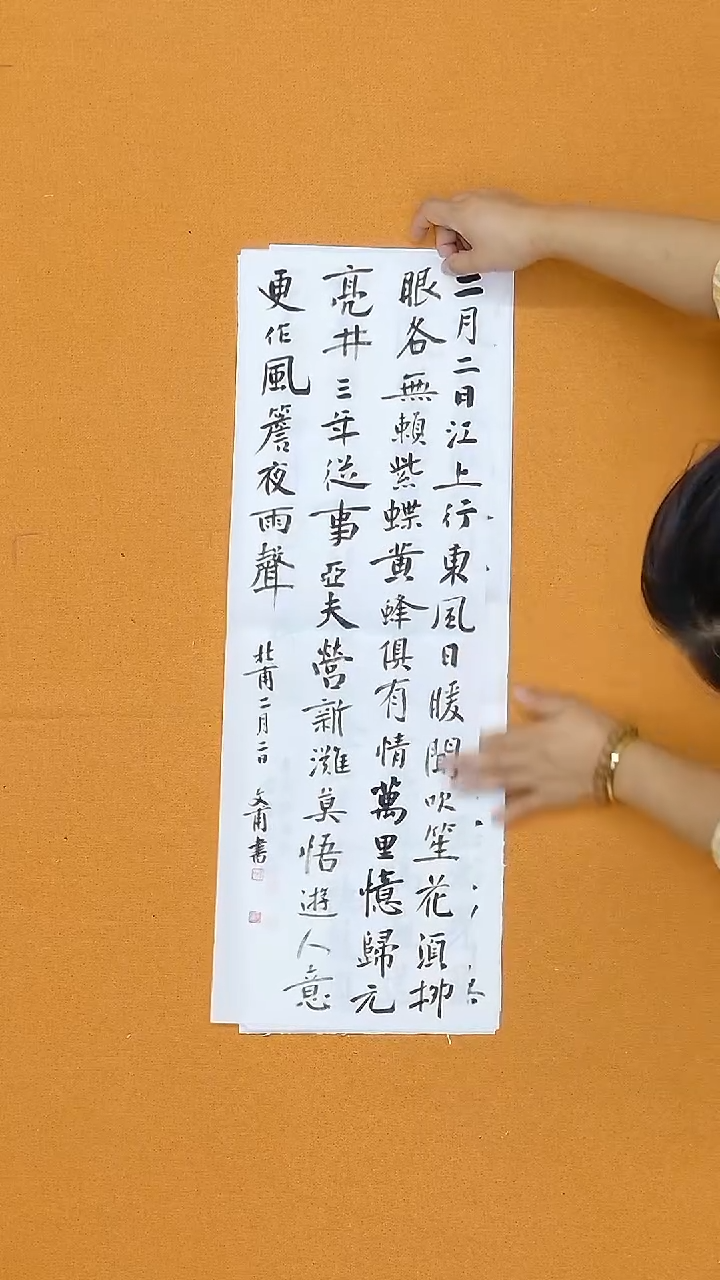 二月二日江上行東風日暖聞吹笙花須柳
眼各無賴紫蝶黃蜂俱有情萬里憶歸元
亮井三年從事亞夫營新灘莫悟遊人意
更作風簷夜雨聲
杜甫二月二日 文甫書